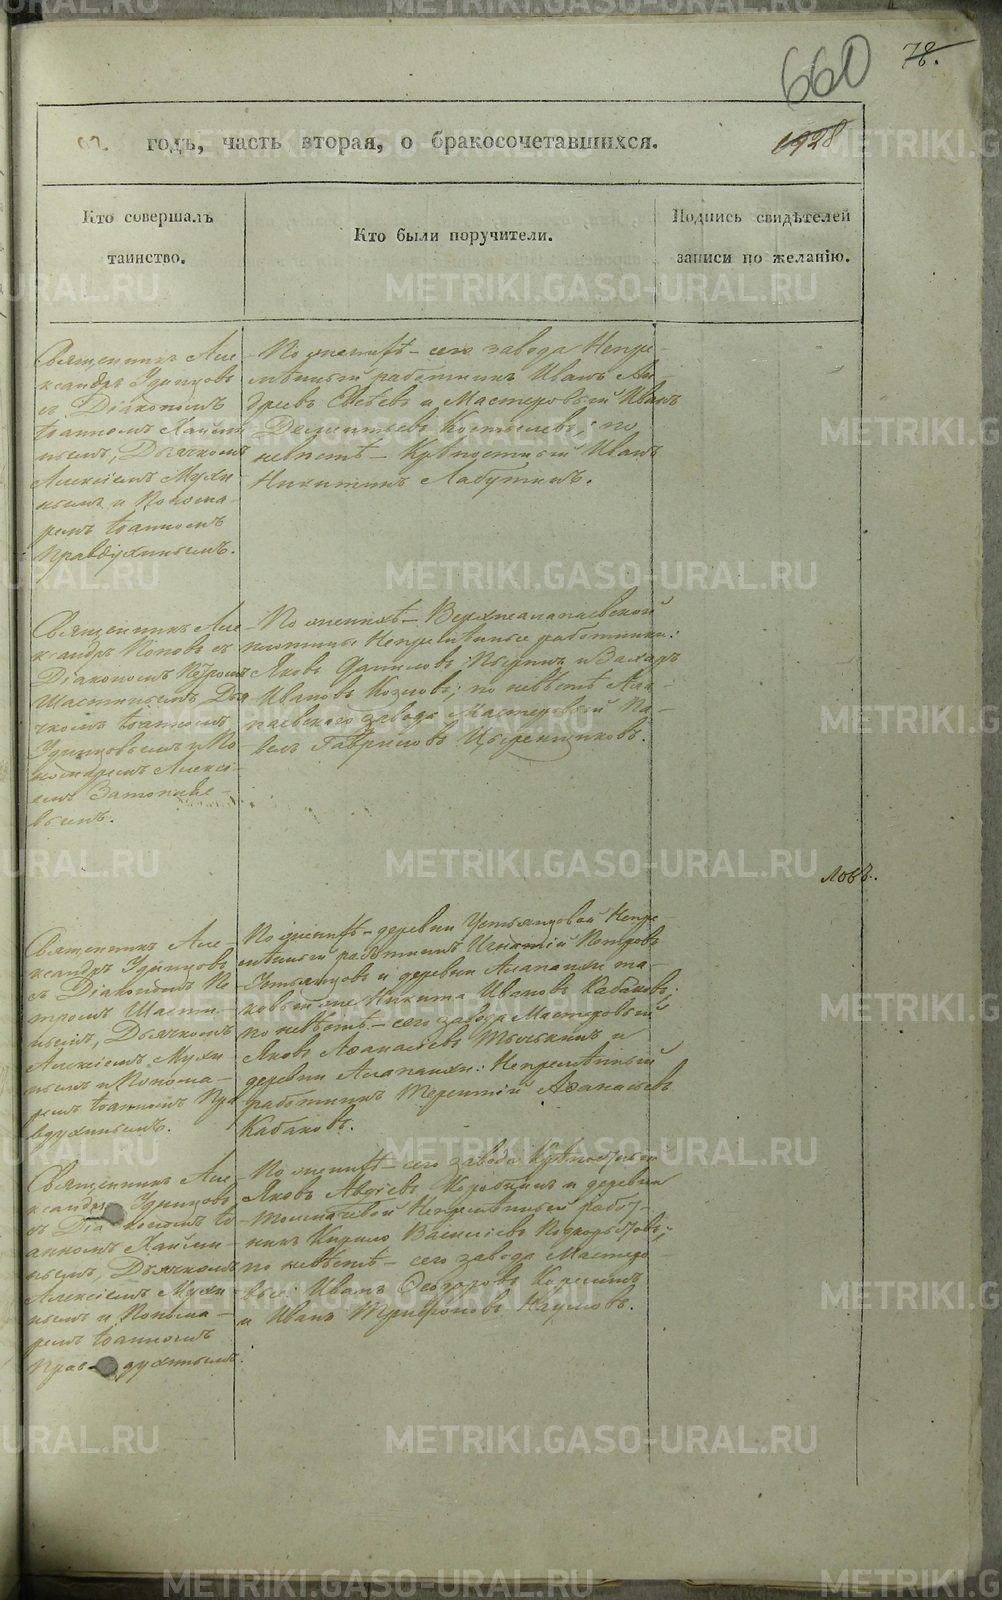 660
78.
62 годъ, часть вторая, о бракосочетавшихся.
1928
Кто совершалъ
таинство.
Кто были поручители.
Подпись свидѣтелей
записи по желанію.
Священникъ Але
ксандръ Удинцовъ
съ Діакономъ
Іоанномъ
Дьячкомъ
Алексіемъ Мухи
нымъ и Понома
ремъ Іоанномъ
Правдухинымъ.
По женихѣ – сего завода Непре
мѣнный работникъ Иванъ Ан
дреевъ и Мастеровый Иванъ
Дементьевъ по
невѣстѣ – Крѣпостный Иванъ
Никитинъ Лабутинъ.
Священникъ Але
ксандръ Поповъ съ
Діакономъ Петромъ
Шастинымъ Дья
чкомъ Іоанномъ
Удинцовымъ и По
номаремъ Алексі
емъ Затопляе
вымъ.
По женихѣ – Верхнеалапаевской
плотины Непремѣнные работники:
Яковъ Даниловъ и
Ивановъ Козловъ; по невѣстѣ Ала
паевскаго завода Мастеровой Па
велъ Гавриловъ Цыренщиковъ.
ловъ.
Священникъ Але
ксандръ Удинцовъ
съ Діакономъ Пе
тромъ Шасти
нымъ, Дьячкомъ
Алексіемъ Мухи
нымъ и Понома
ремъ Іоанномъ Пра
вдухинымъ.
По женихѣ – деревни Устьянцовой Непре
мѣнный работникъ Игнатій Петровъ
Устьянцовъ и деревни Алапаихи та
ковый же Никита Ивановъ Кабаковъ;
по невѣстѣ – сего завода Мастеровый
Яковъ Аѳанасьевъ и
деревни Алапаихи: Непремѣнный
работникъ Терентій Аѳанасьевъ
Кабаковъ.
Священникъ Але
ксандръ Удинцовъ
съ Діакономъ Іо
анномъ
Дьячкомъ
Алексіемъ Мухи
нымъ и Понома
ремъ Іоанномъ
Правдухинымъ.
По женихѣ – сего завода Крѣпостный
Яковъ Авдіевъ Коробкинъ и деревни
Толмачевой Непремѣнный работ
никъ Кирило Василіевъ Подкорытовъ;
по невѣстѣ – сего завода Мастеро
вые: Иванъ Ѳедоровъ
и Иванъ Трифоновъ
METRIKI.GASO-URAL.RU